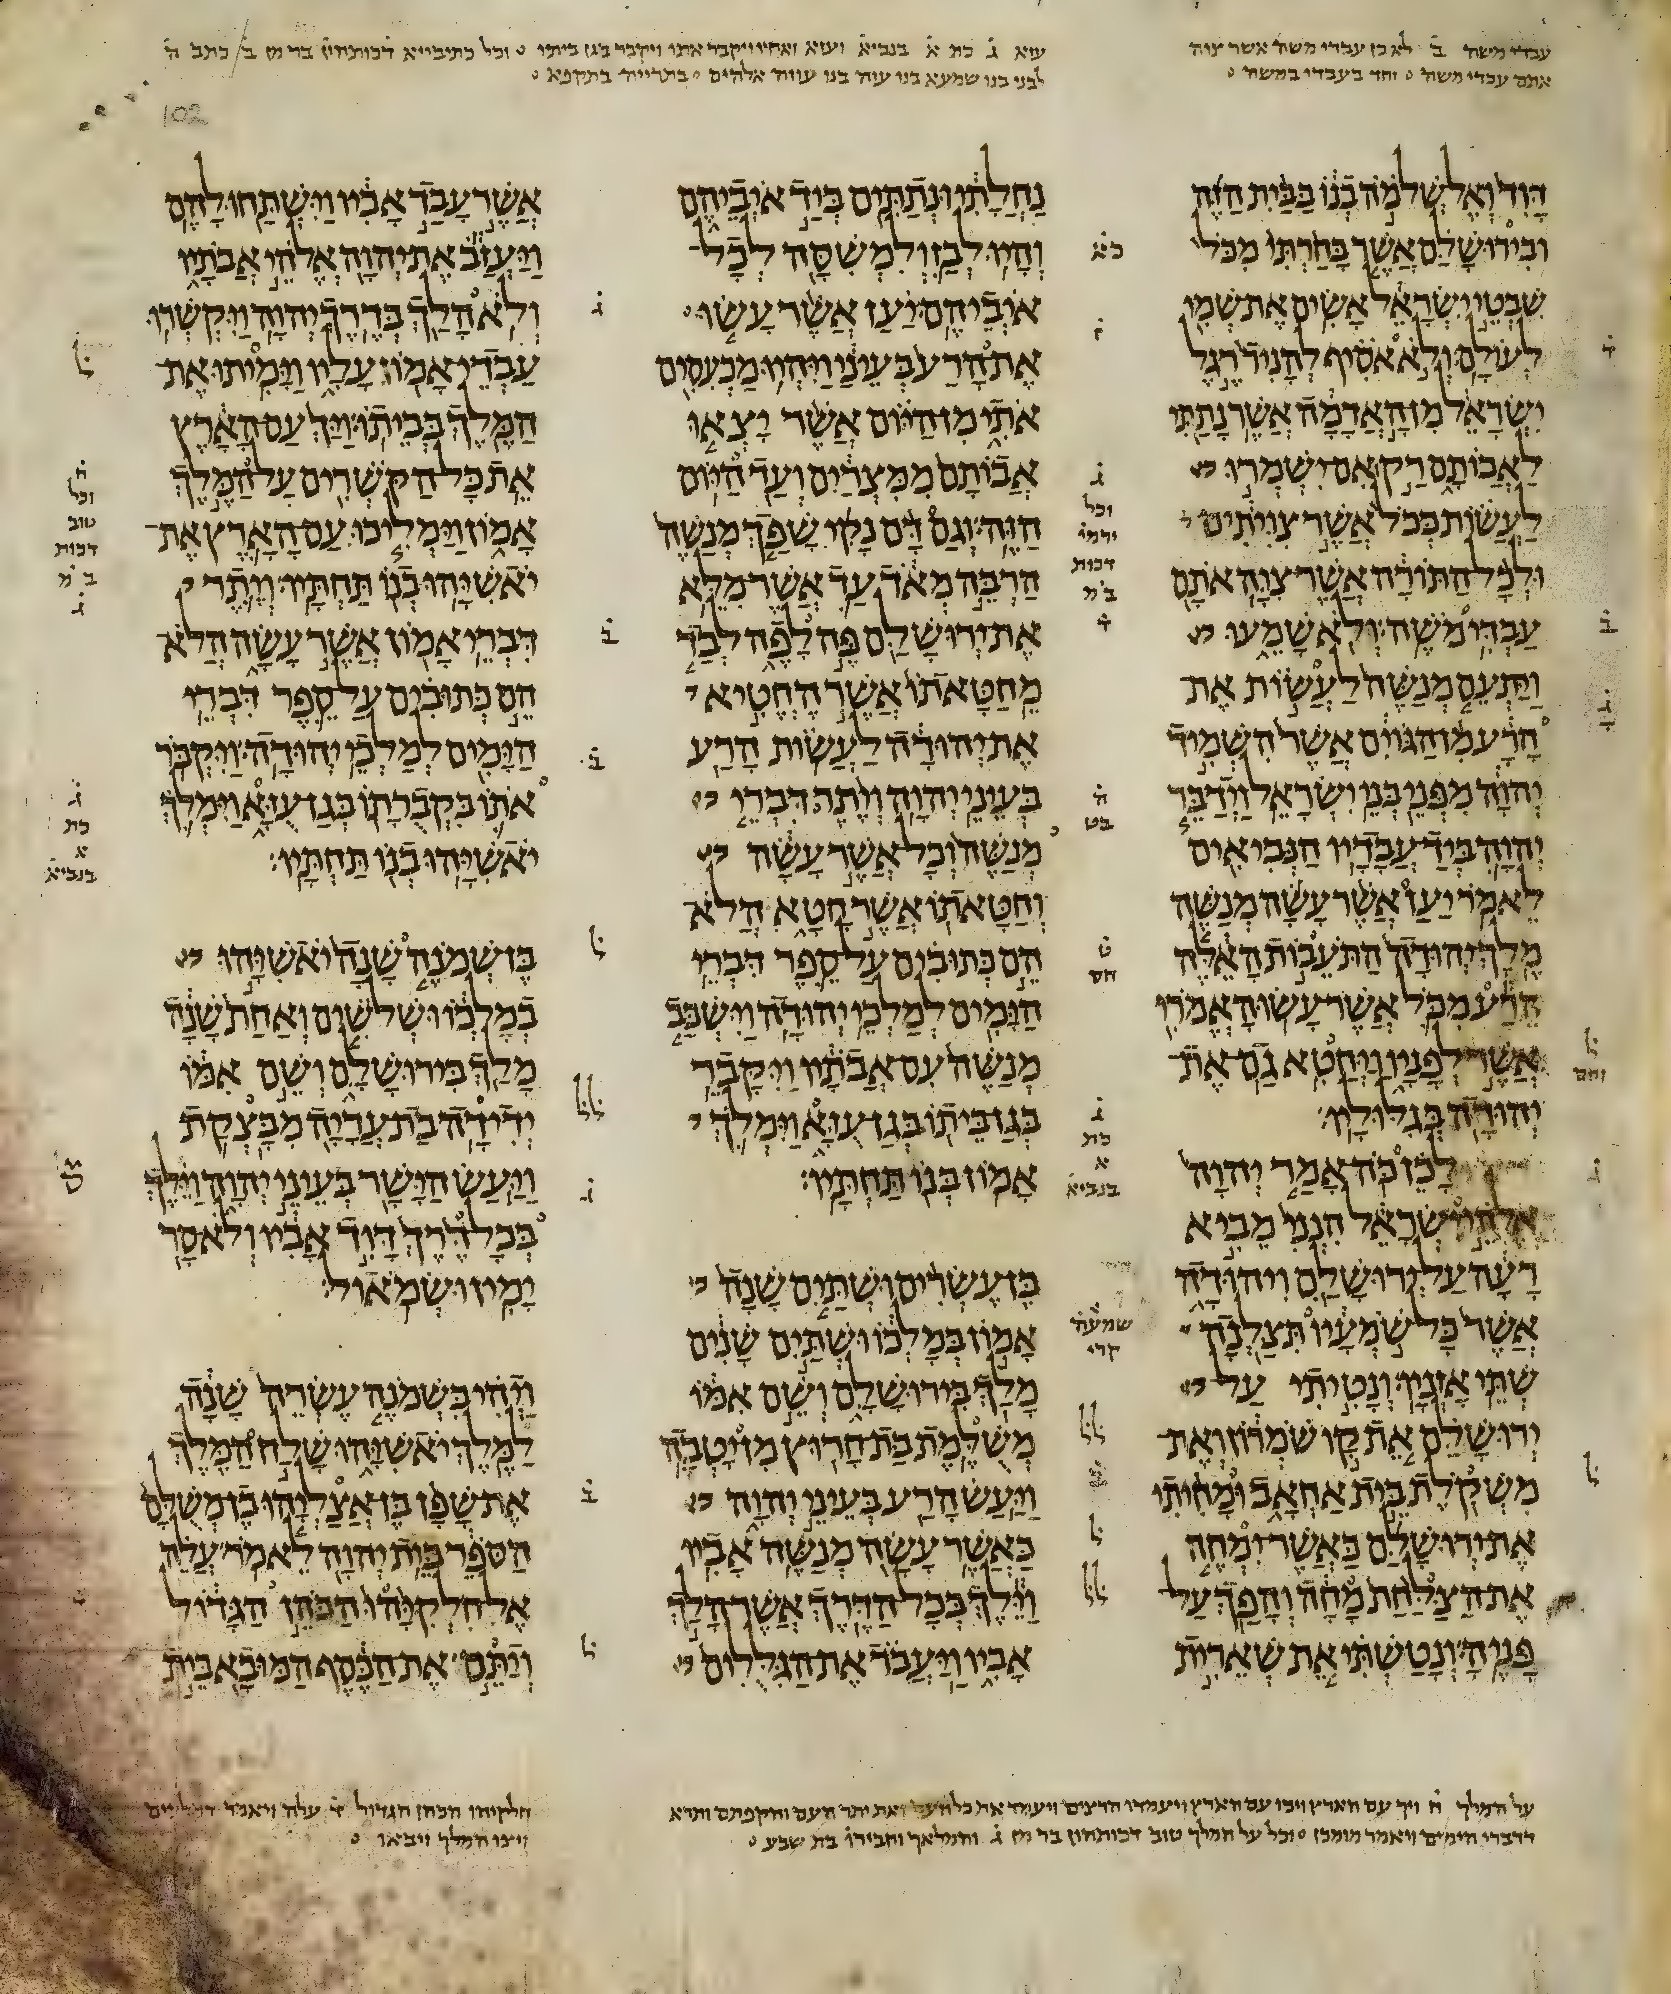 עבדי משה ב̇ לא כן עבדי משה אשר צוה
אתם עבדי משה ○ וחד בעבדי במשה ○
עזא ג̇ כת א̇ בנביא̇ ועזא ואחיו ויקבר אתו ויקבר בגן ביתו ○ וכל כתיבייא דכותהון בר מן ב̇ כתב ה̇
לבני בנו שמעא בנו עזה בנו עוזה אלהים ○ בתרייה בתקפא ○
דוד ואל שלמה בנו בבית הזה
ובירושלם אשר בחרתי מכל
שבטי ישראל אשים את שמי
לעולם ולא אסיף להניד רגל
ישראל מן האדמה אשר נתתי
לאבותם רק אם ישמרו
לעשות ככל אשר צויתים
ולכל התורה אשר צוה אתם
עבדי משה ולא שמעו
ויתעם מנשה לעשות את
הרע מן הגוים אשר השמיד
יהוה מפני בני ישראל וידבר
יהוה ביד עבדיו הנביאים
לאמר יען אשר עשה מנשה
מלך יהודה התעבות האלה
הרע מכל אשר עשו האמרי
אשר לפניו ויחטא גם את
יהודה בגלוליו
לכן כה אמר יהוה
אלהי ישראל הנני מביא
רעה על ירושלם ויהודה
אשר כל שמעיו תצלנה
שתי אזניו ונטיתי על
ירושלם את קו שמרון ואת
משקלת בית אחאב ומחיתי
את ירושלם כאשר ימחה
את הצלחת מחה והפך על
פניה ונטשתי את שארית
נחלתי ונתתים ביד איביהם
והיו לבז ולמשסה לכל
אויביהם יען אשר עשו
את הרע בעיני ויהיו מכעסים
אתי מן היום אשר יצאו
אבותם ממצרים ועד היום
הזה וגם דם נקי שפך מנשה
הרבה מאד עד אשר מלא
את ירושלם פה לפה לבד
מחטאתו אשר החטיא
את יהודה לעשות הרע
בעיני יהוה ויתר דברי
מנשה וכל אשר עשה
וחטאתו אשר חטא הלא
הם כתובים על ספר דברי
הימים למלכי יהודה וישכב
מנשה עם אבתיו ויקבר
בגן ביתו בגן עזא וימלך
אמון בנו תחתיו
בן עשרים ושתים שנה
אמון במלכו ושתים שנים
מלך בירושלם ושם אמו
משלמת בת חרוץ מן יטבה
ויעש הרע בעיני יהוה
כאשר עשה מנשה אביו
וילך בכל הדרך אשר הלך
אביו ויעבד את הגללים
אשר עבד אביו וישתחו להם
ויעזב את יהוה אלהי אבתיו
ולא הלך בדרך יהוה ויקשרו
עבדי אמון עליו וימיתו את
המלך בביתו ויך עם הארץ
את כל הקשרים על המלך
אמון וימליכו עם הארץ את
יאשיהו בנו תחתיו ויתר
דברי אמון אשר עשה הלא
הם כתובים על ספר דברי
הימים למלכי יהודה ויקבר
אתו בקברתו בגן עזא וימלך
יאשיהו בנו תחתיו
בן שמנה שנה יאשיהו
במלכו ושלשים ואחת שנה
מלך בירושלם ושם אמו
ידידה בת עדיה מבצקת
ויעש הישר בעיני יהוה וילך
בכל דרך דויד אביו ולא סר
ימין ושמאול
ויהי בשמנה עשרה שנה
למלך יאשיהו שלח המלך
את שפן בן אצליהו בן משלם
הספר בית יהוה לאמר עלה
אל חלקיהו הכהן הגדול
ויתם את הכסף המובא בית
שמעה
קרי
ג̇
כת
א
בנביא̇
ג̇
וכל
ירמי̇
דכות
ב̇מ̇
ד̇
ה̇
וכל
טוב
דכות
ב̇מ̇
ג̇
ג̇
כת
א
בנביא̇
על המלך ה̇ ויך עם הארץ ויכו עם הארץ ויעמדו הרצים ויעמד את כל העם ואת יתר העם והקפתם ותרא
דדברי הימים ויאמר מומכן ○ וכל על המלך טוב דכותהון בר מן ג̇ והמלאך וחבירו̇ בת שבע ○
חלקיהו הכהן הגדול עלה ויאמר
ויצו המלך ויבאו ○